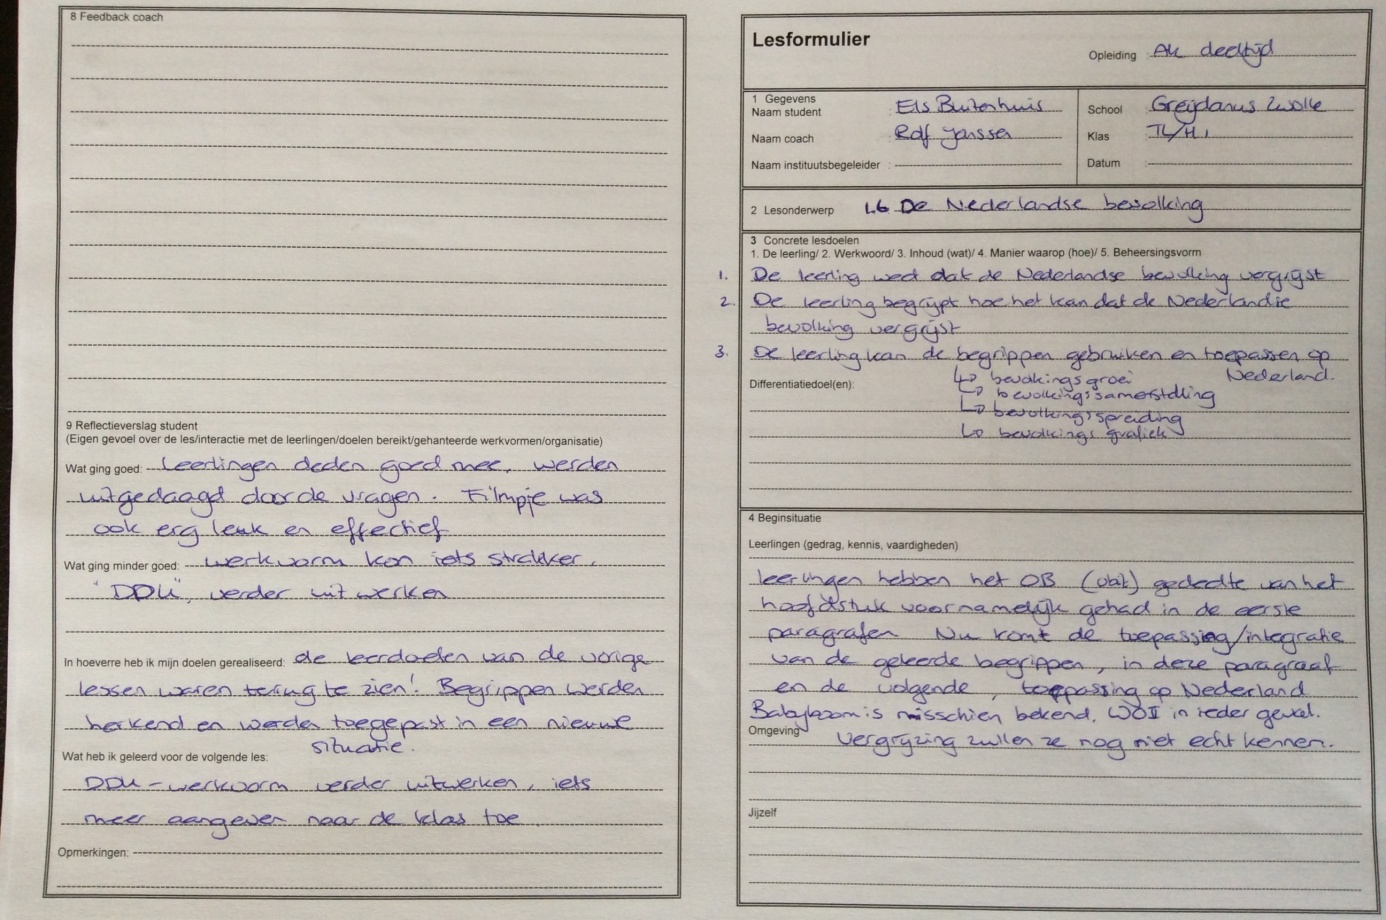 8 Feedback coach
9 Reflectieverslag student
(Eigen gevoel over de les/interactie met de leerlingen/doelen bereikt/gehanteerde werkvormen/organisatie)
Wat ging goed: Leerlingen deden goed mee, werden
uitgedaagd door de vragen. Filmpje was
ook erg leuk en effectief
Wat ging minder goed: werkvorm kon iets strakker.
"DDU", verder uitwerken
In hoeverre heb ik mijn doelen gerealiseerd: de leerdoelen van de vorige
lessen waren terug te zien! Begrippen werden
herkend en werden toegepast in een nieuwe
situatie.
Wat heb ik geleerd voor de volgende les:
DDU-werkvorm verder uitwerken, iets
meer aangeven naar de klas toe
Opmerkingen:
Lesformulier
Opleiding Ak deeltijd
1 Gegevens
Naam student : Els Buitenhuis
School : Greijdanus Zwolle
Naam coach : Rolf Jansen
Klas : TL/H1
Naam instituutsbegeleider :
Datum :
2 Lesonderwerp 1.6 De Nederlandse bevolking
3 Concrete lesdoelen
1. De leerling/ 2. Werkwoord/ 3. Inhoud (wat)/ 4. Manier waarop (hoe)/ 5. Beheersingsvorm
1. De leerling weet dat de Nederlandse bevolking vergrijst
2. De leerling begrijpt hoe het kan dat de Nederlandse
bevolking vergrijst
3. De leerling kan de begrippen gebruiken en toepassen op
Nederland.
↳ bevolkingsgroei
Differentiatiedoel(en):
↳ bevolkingssamenstelling
↳ bevolkingsspreiding
↳ bevolkingsgrafiek
4 Beginsituatie
Leerlingen (gedrag, kennis, vaardigheden)
leerlingen hebben het OB gedeelte van het
hoofdstuk voornamelijk gehad in de eerste
paragrafen. Nu komt de toepassing/integratie
van de geleerde begrippen, in deze paragraaf
en de volgende, toepassing op Nederland
Babyboom is misschien bekend, WOII in ieder geval.
Omgeving
Vergrijzing zullen ze nog niet echt kennen.
Jijzelf